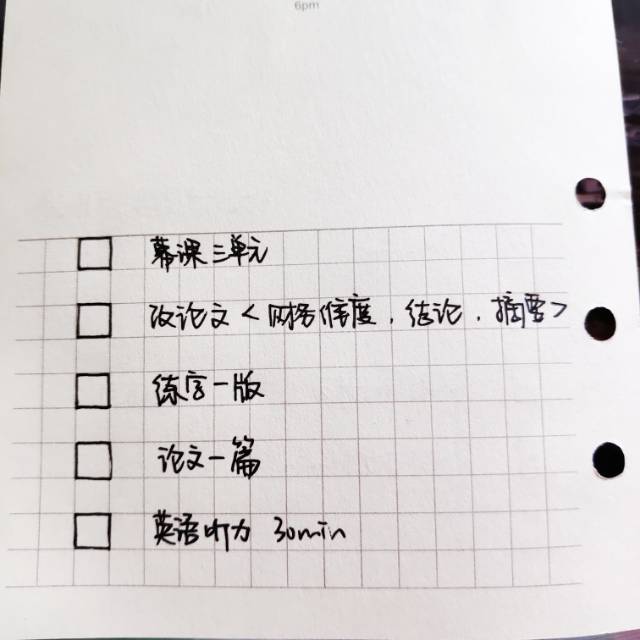 6pm
幕课三单元
改论文<财务维度，结论，摘要>
练字一版
论文一篇
英语听力 30min